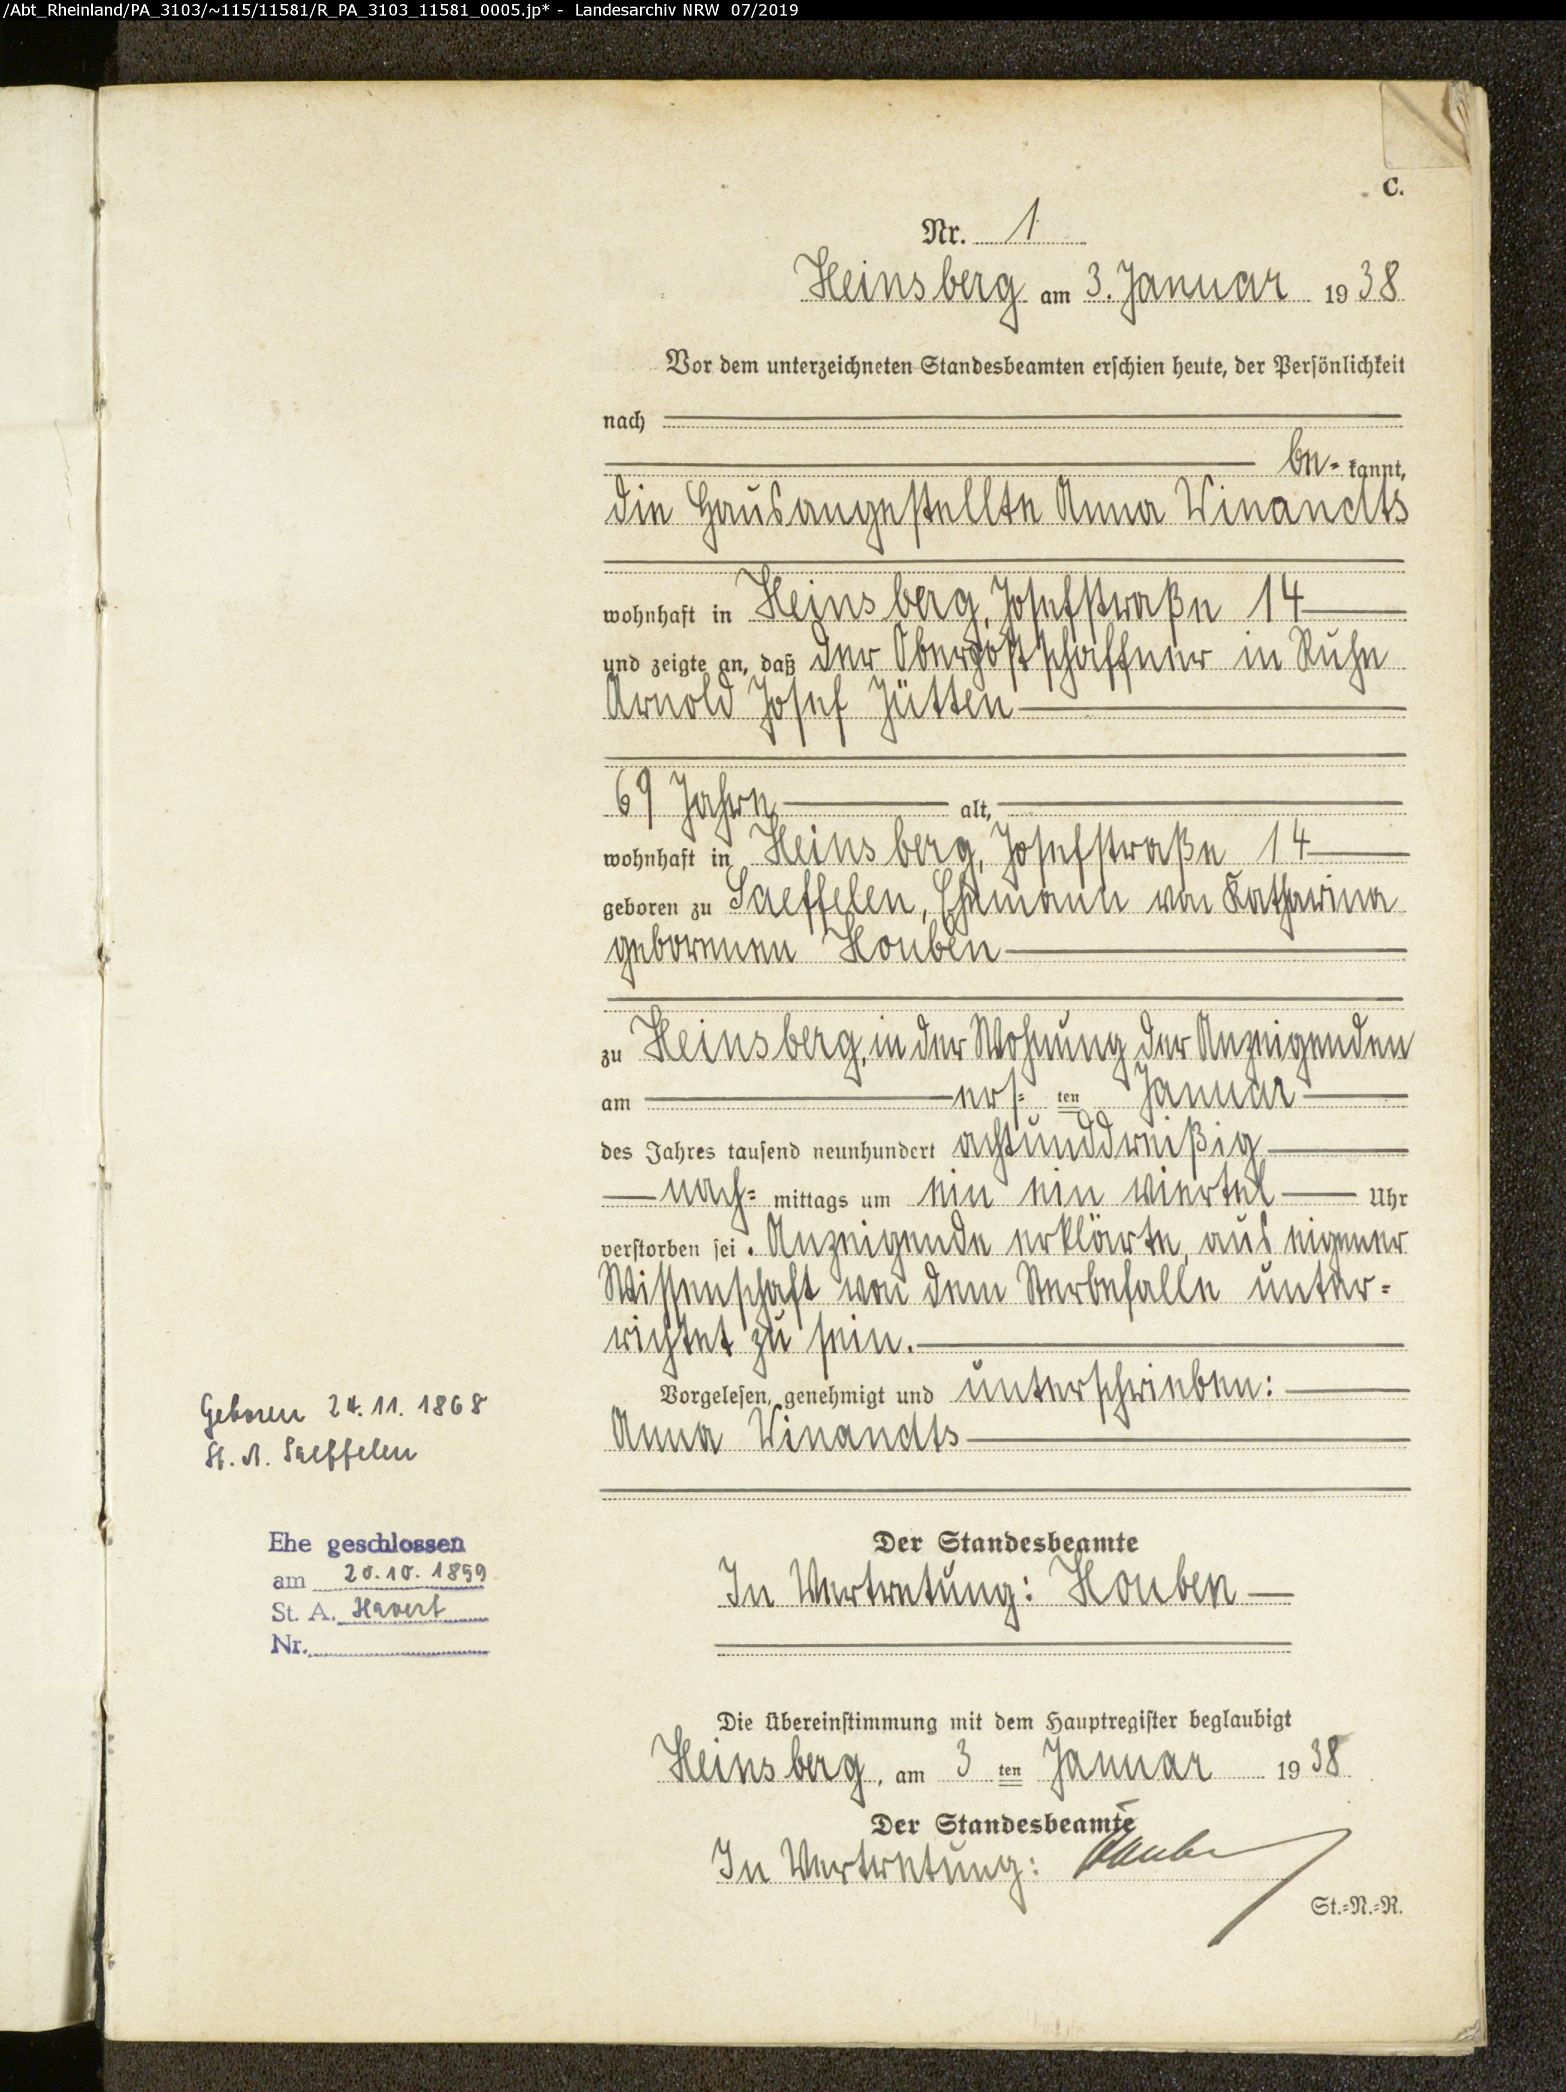 /Abt_Rheinland/PA_3103/~115/11581/R_PA_3103_11581_0005.jp* - Landesarchiv NRW 07/2019
C.
Nr. 1
Heinsberg am 3. Januar 1938
Vor dem unterzeichneten Standesbeamten erschien heute, der Persönlichkeit
nach
be- kannt,
die Hausangestellte Anna Winandts
wohnhaft in Heinsberg, Josefstraße 14
und zeigte an, daß der Oberpostschaffner in Ruhe
Arnold Josef Jütten
69 Jahre alt,
wohnhaft in Heinsberg, Josefstraße 14
geboren zu Saeffelen, Ehemann von Katharina
geborenen Houben
zu Heinsberg, in der Wohnung der Anzeigenden
am ers= ten Januar
des Jahres tausend neunhundert achtunddreißig
nach= mittags um ein ein viertel Uhr
verstorben sei. Anzeigende erklärte, aus eigener
Wissenschaft von dem Sterbefalle unter=
richtet zu sein.
Vorgelesen, genehmigt und unterschrieben:
Anna Winandts
Der Standesbeamte
In Vertretung: Houben
Die Übereinstimmung mit dem Hauptregister beglaubigt
Heinsberg, am 3 ten Januar 1938
Der Standesbeamte
In Vertretung: Houben
St.=N.=R.
Geboren 24.11.1868
St. A. Saeffelen
Ehe geschlossen
am 20.10.1899
St. A. Havert
Nr.